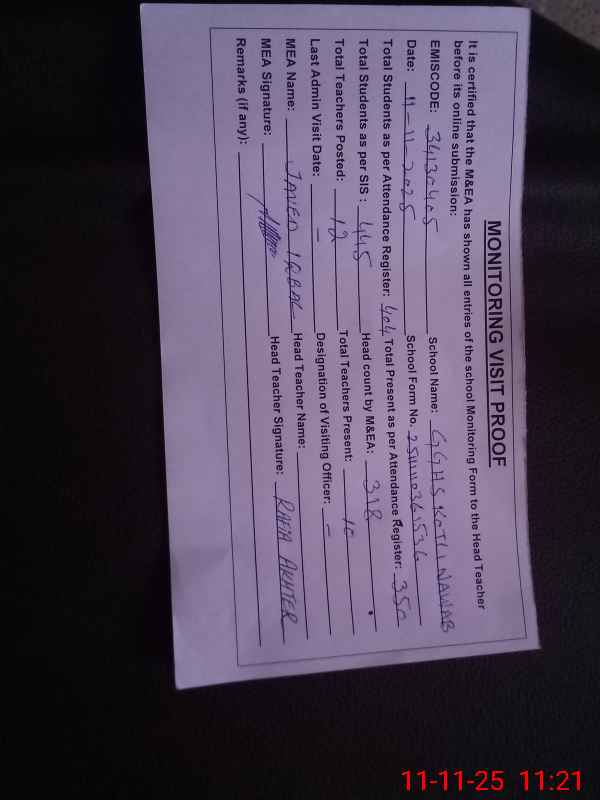 MONITORING VISIT PROOF
It is certified that the M&EA has shown all entries of the school Monitoring Form to the Head Teacher
before its online submission:
EMISCODE: 34130405 School Name: GGHS KOTLI NAWAB
Date: 11-11-2025 School Form No. 2511110361536
Total Students as per Attendance Register: 404 Total Present as per Attendance Register: 350
Total Students as per SIS : 445 Head count by M&EA: 318
Total Teachers Posted: 12 Total Teachers Present: 10
Last Admin Visit Date: - Designation of Visiting Officer: -
MEA Name: JAVED IQBAL Head Teacher Name:
MEA Signature: Head Teacher Signature: RAFIA AKHTER
Remarks (if any):
11-11-25 11:21